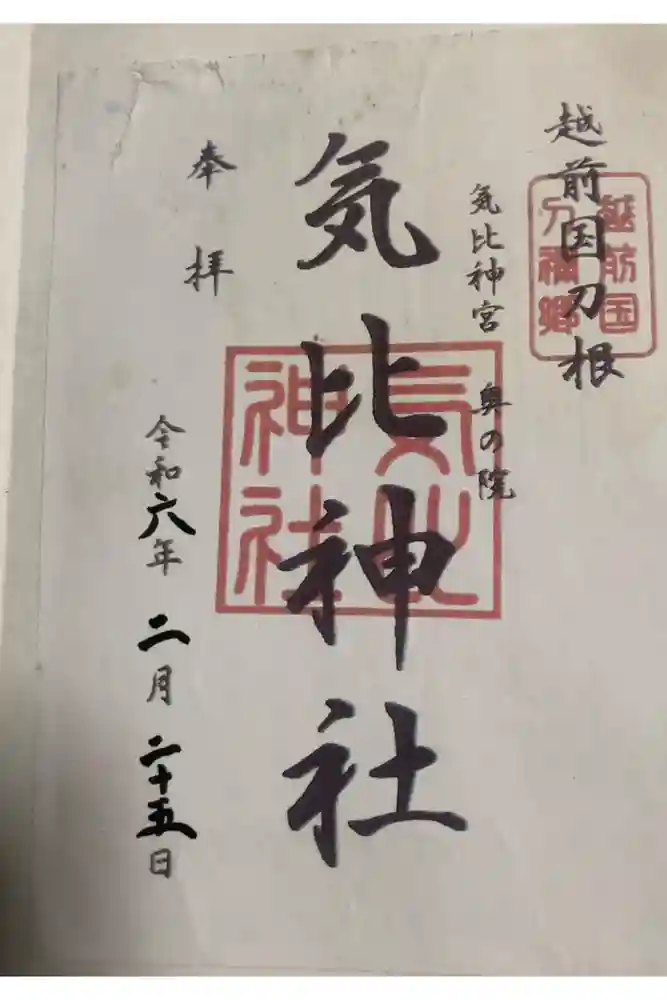 越前国刀根
気比神宮 奥の院
気比神社
奉拝
令和六年 二月 二十五日
気比
神社
越前国
刀禰郷